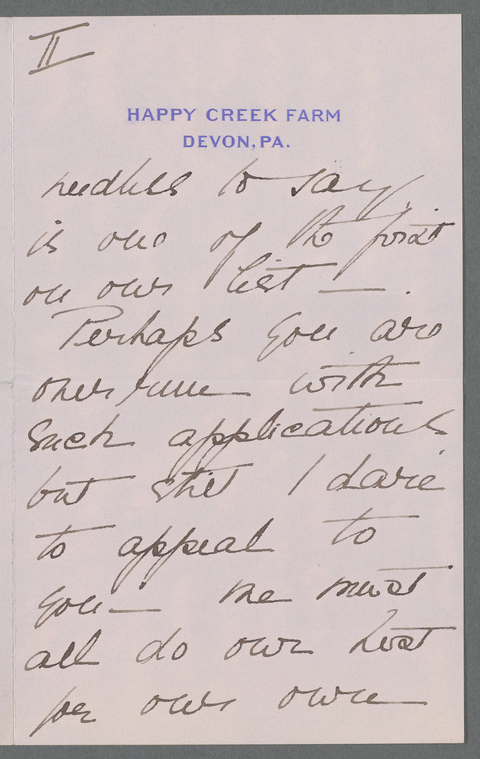 II
HAPPY CREEK FARM
DEVON, PA.
needless to say,
is one of the first
on our list — .
Perhaps you are
overrun with
such applications
but still I dare
to appeal to
you — We must
all do our best
for our own